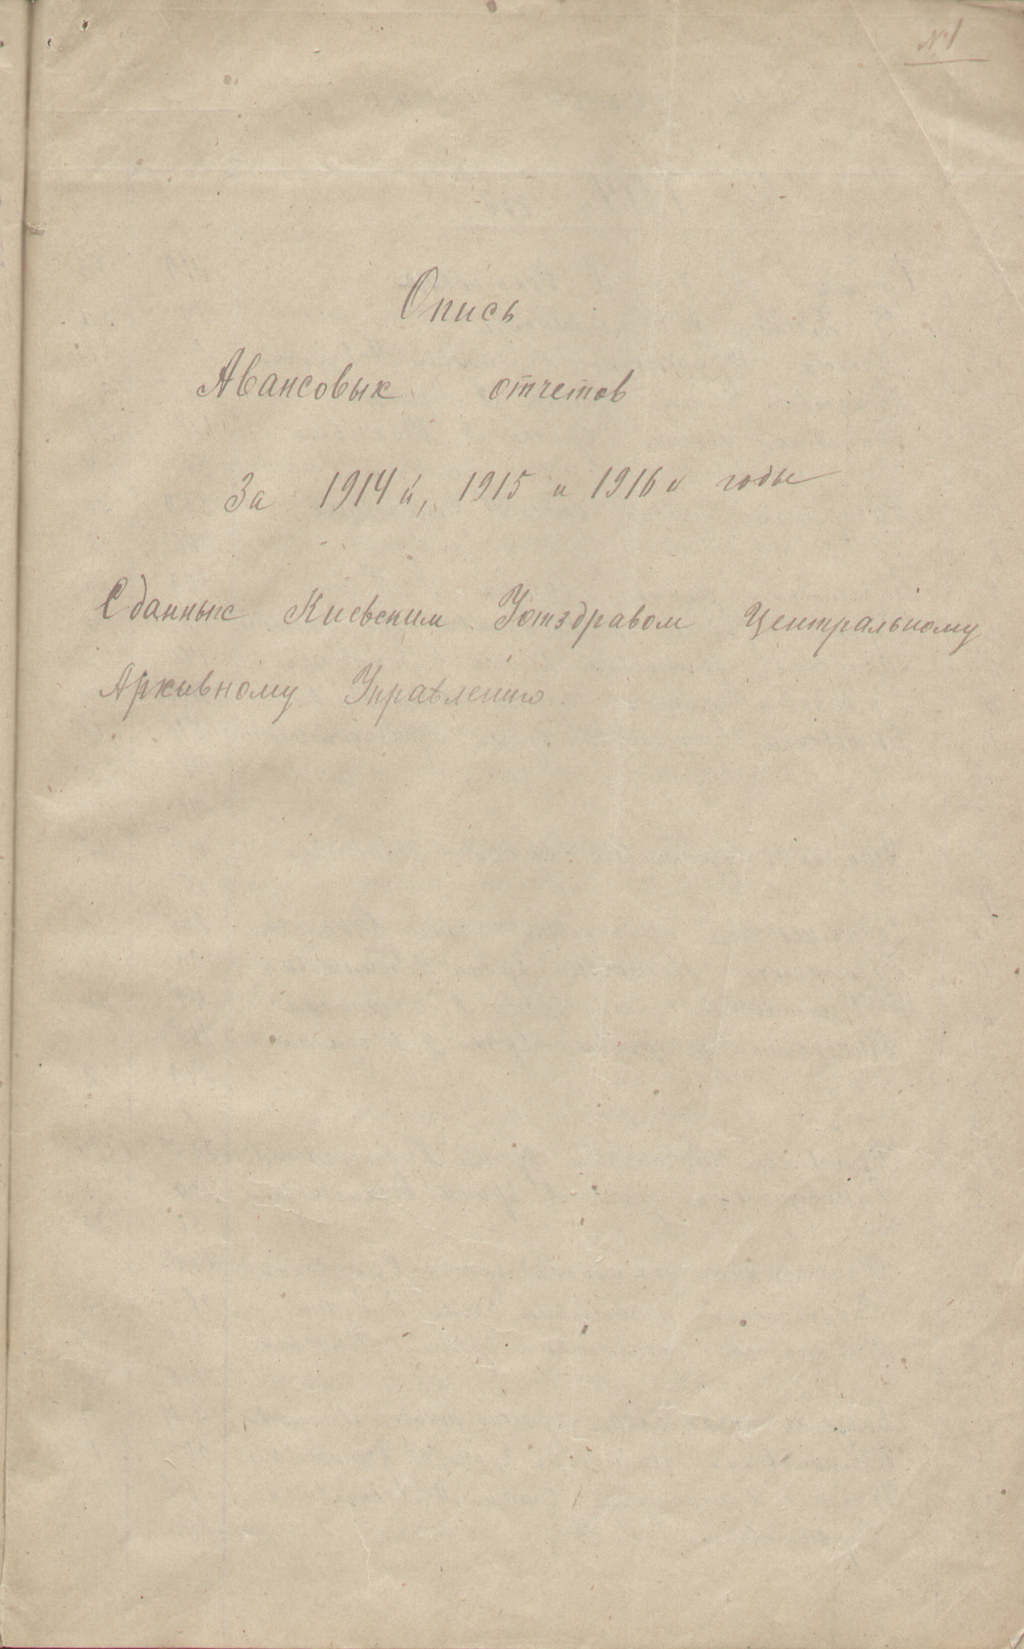 №1
Опись
Авансовых отчетов
За 1914й, 1915 и 1916й годы
Сданных Киевским Уотздравом Центральному
Архивному Управлению